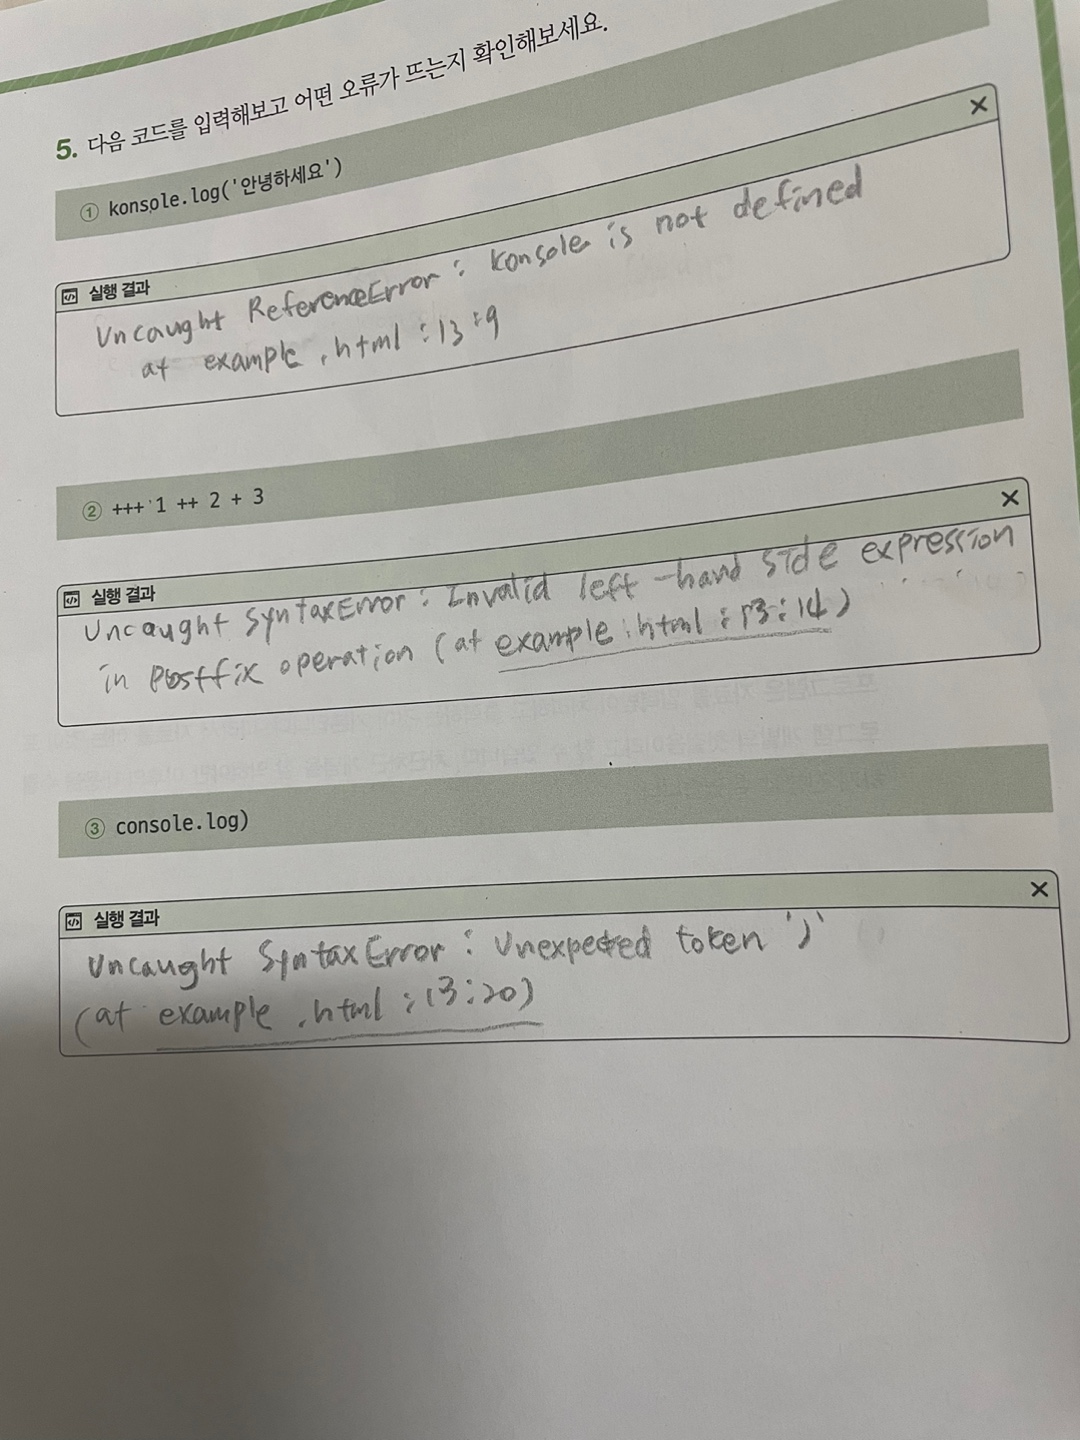 5. 다음 코드를 입력해보고 어떤 오류가 뜨는지 확인해보세요.
① konsole.log('안녕하세요')
실행 결과
Uncaught ReferenceError : konsole is not defined
at example.html :13:9
② +++ 1 ++ 2 + 3
실행 결과
Uncaught SyntaxError : Invalid left-hand side expression
in postfix operation (at example.html :13:14)
③ console.log)
실행 결과
Uncaught SyntaxError : Unexpected token ')'
(at example.html :13:20)